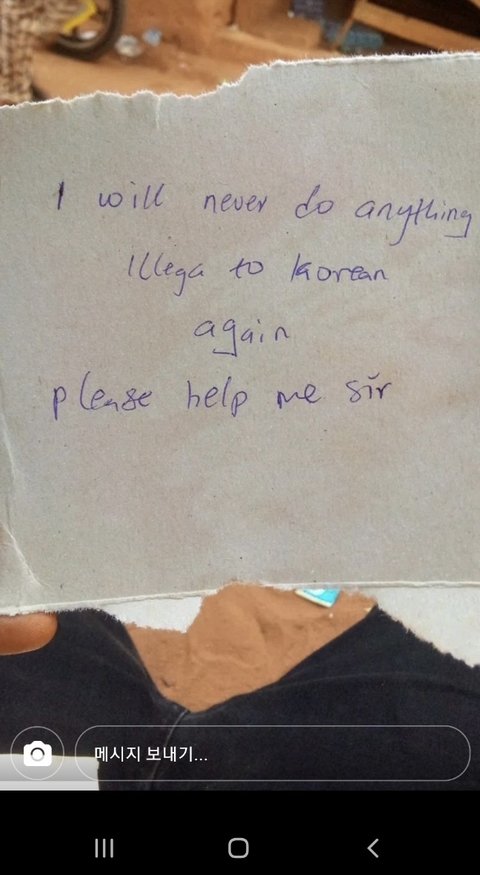 I will never do anything
illega to korean
again
please help me sir
메시지 보내기...